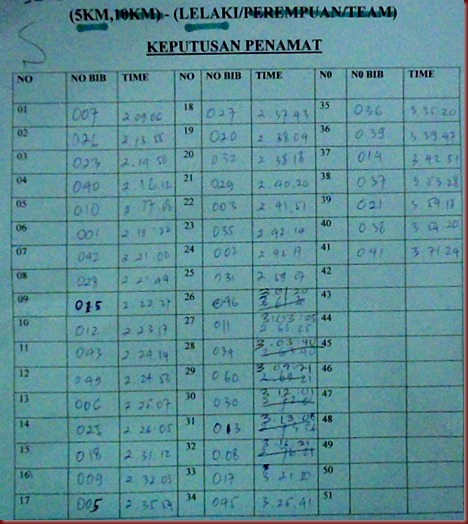 (5KM,10KM) - (LELAKI/PEREMPUAN/TEAM)
KEPUTUSAN PENAMAT
NO NO BIB TIME NO NO BIB TIME N0 N0 BIB TIME
01 007 2.09.06 18 027 2.37.43 35 036 3.35.20
02 026 2.13.55 19 020 2.38.09 36 039 3.39.47
03 023 2.14.50 20 032 2.38.18 37 014 3.42.51
04 040 2.16.12 21 029 2.40.20 38 037 3.53.28
05 010 22 003 2.41.51 39 021 3.54.18
06 001 23 035 2.42.19 40 038 3.54.20
07 042 2.21.00 24 002 41 041
08 2.21.49 25 031 2.58.07 42
09 015 2.22.37 26 046 3.01.20 43
10 012 2.23.17 27 011 3.03.25 44
11 043 2.24.19 28 034 3.03.40 45
12 049 2.24.50 29 060 3.09.21 46
13 006 2.25.07 30 030 3.12.01 47
14 2.26.05 31 013 3.13.06 48
15 018 2.31.12 32 008 3.16.21 49
16 009 2.32.03 33 017 50
17 005 2.35.54 34 045 3.25.41 51